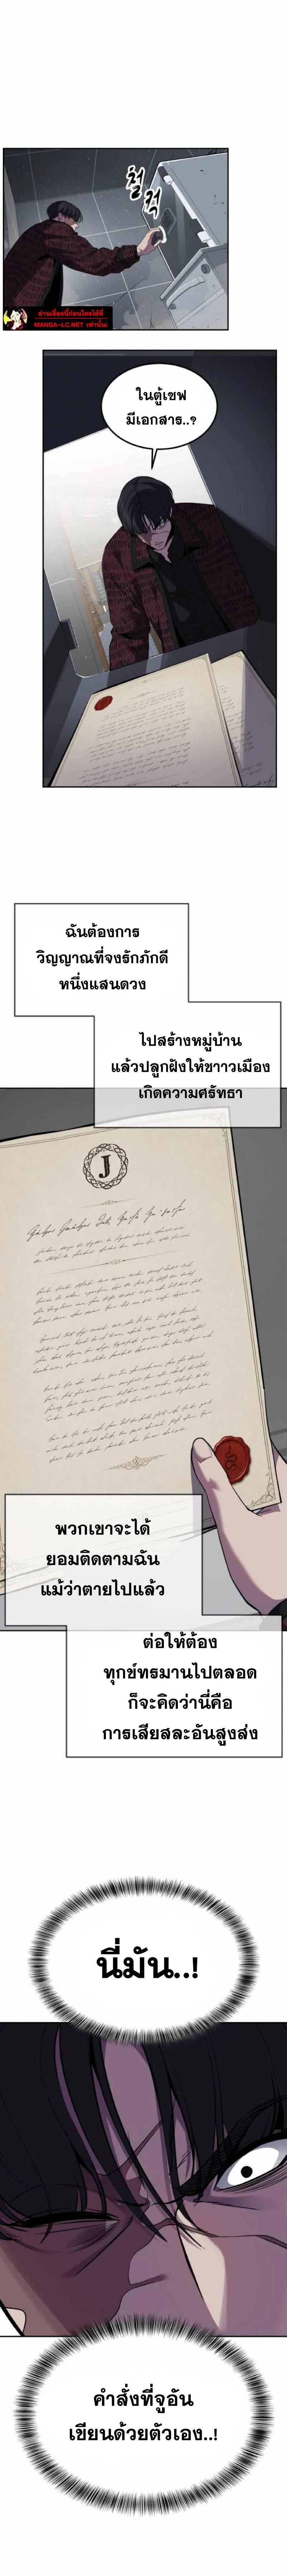 철
컥
อ่านเรื่องนี้ก่อนใครได้ที่
MANGA-LC.NET เท่านั้น!
ในตู้เซฟ
มีเอกสาร..?
ฉันต้องการ
วิญญาณที่จงรักภักดี
หนึ่งแสนดวง
ไปสร้างหมู่บ้าน
แล้วปลูกฝังให้ขาาวเมือง
เกิดความศรัทธา
J
พวกเขาจะได้
ยอมติดตามฉัน
แม้ว่าตายไปแล้ว
ต่อให้ต้อง
ทุกข์ทรมานไปตลอด
ก็จะคิดว่านี่คือ
การเสียสละอันสูงส่ง
นี่มัน..!
คำสั่งที่จูอัน
เขียนด้วยตัวเอง..!